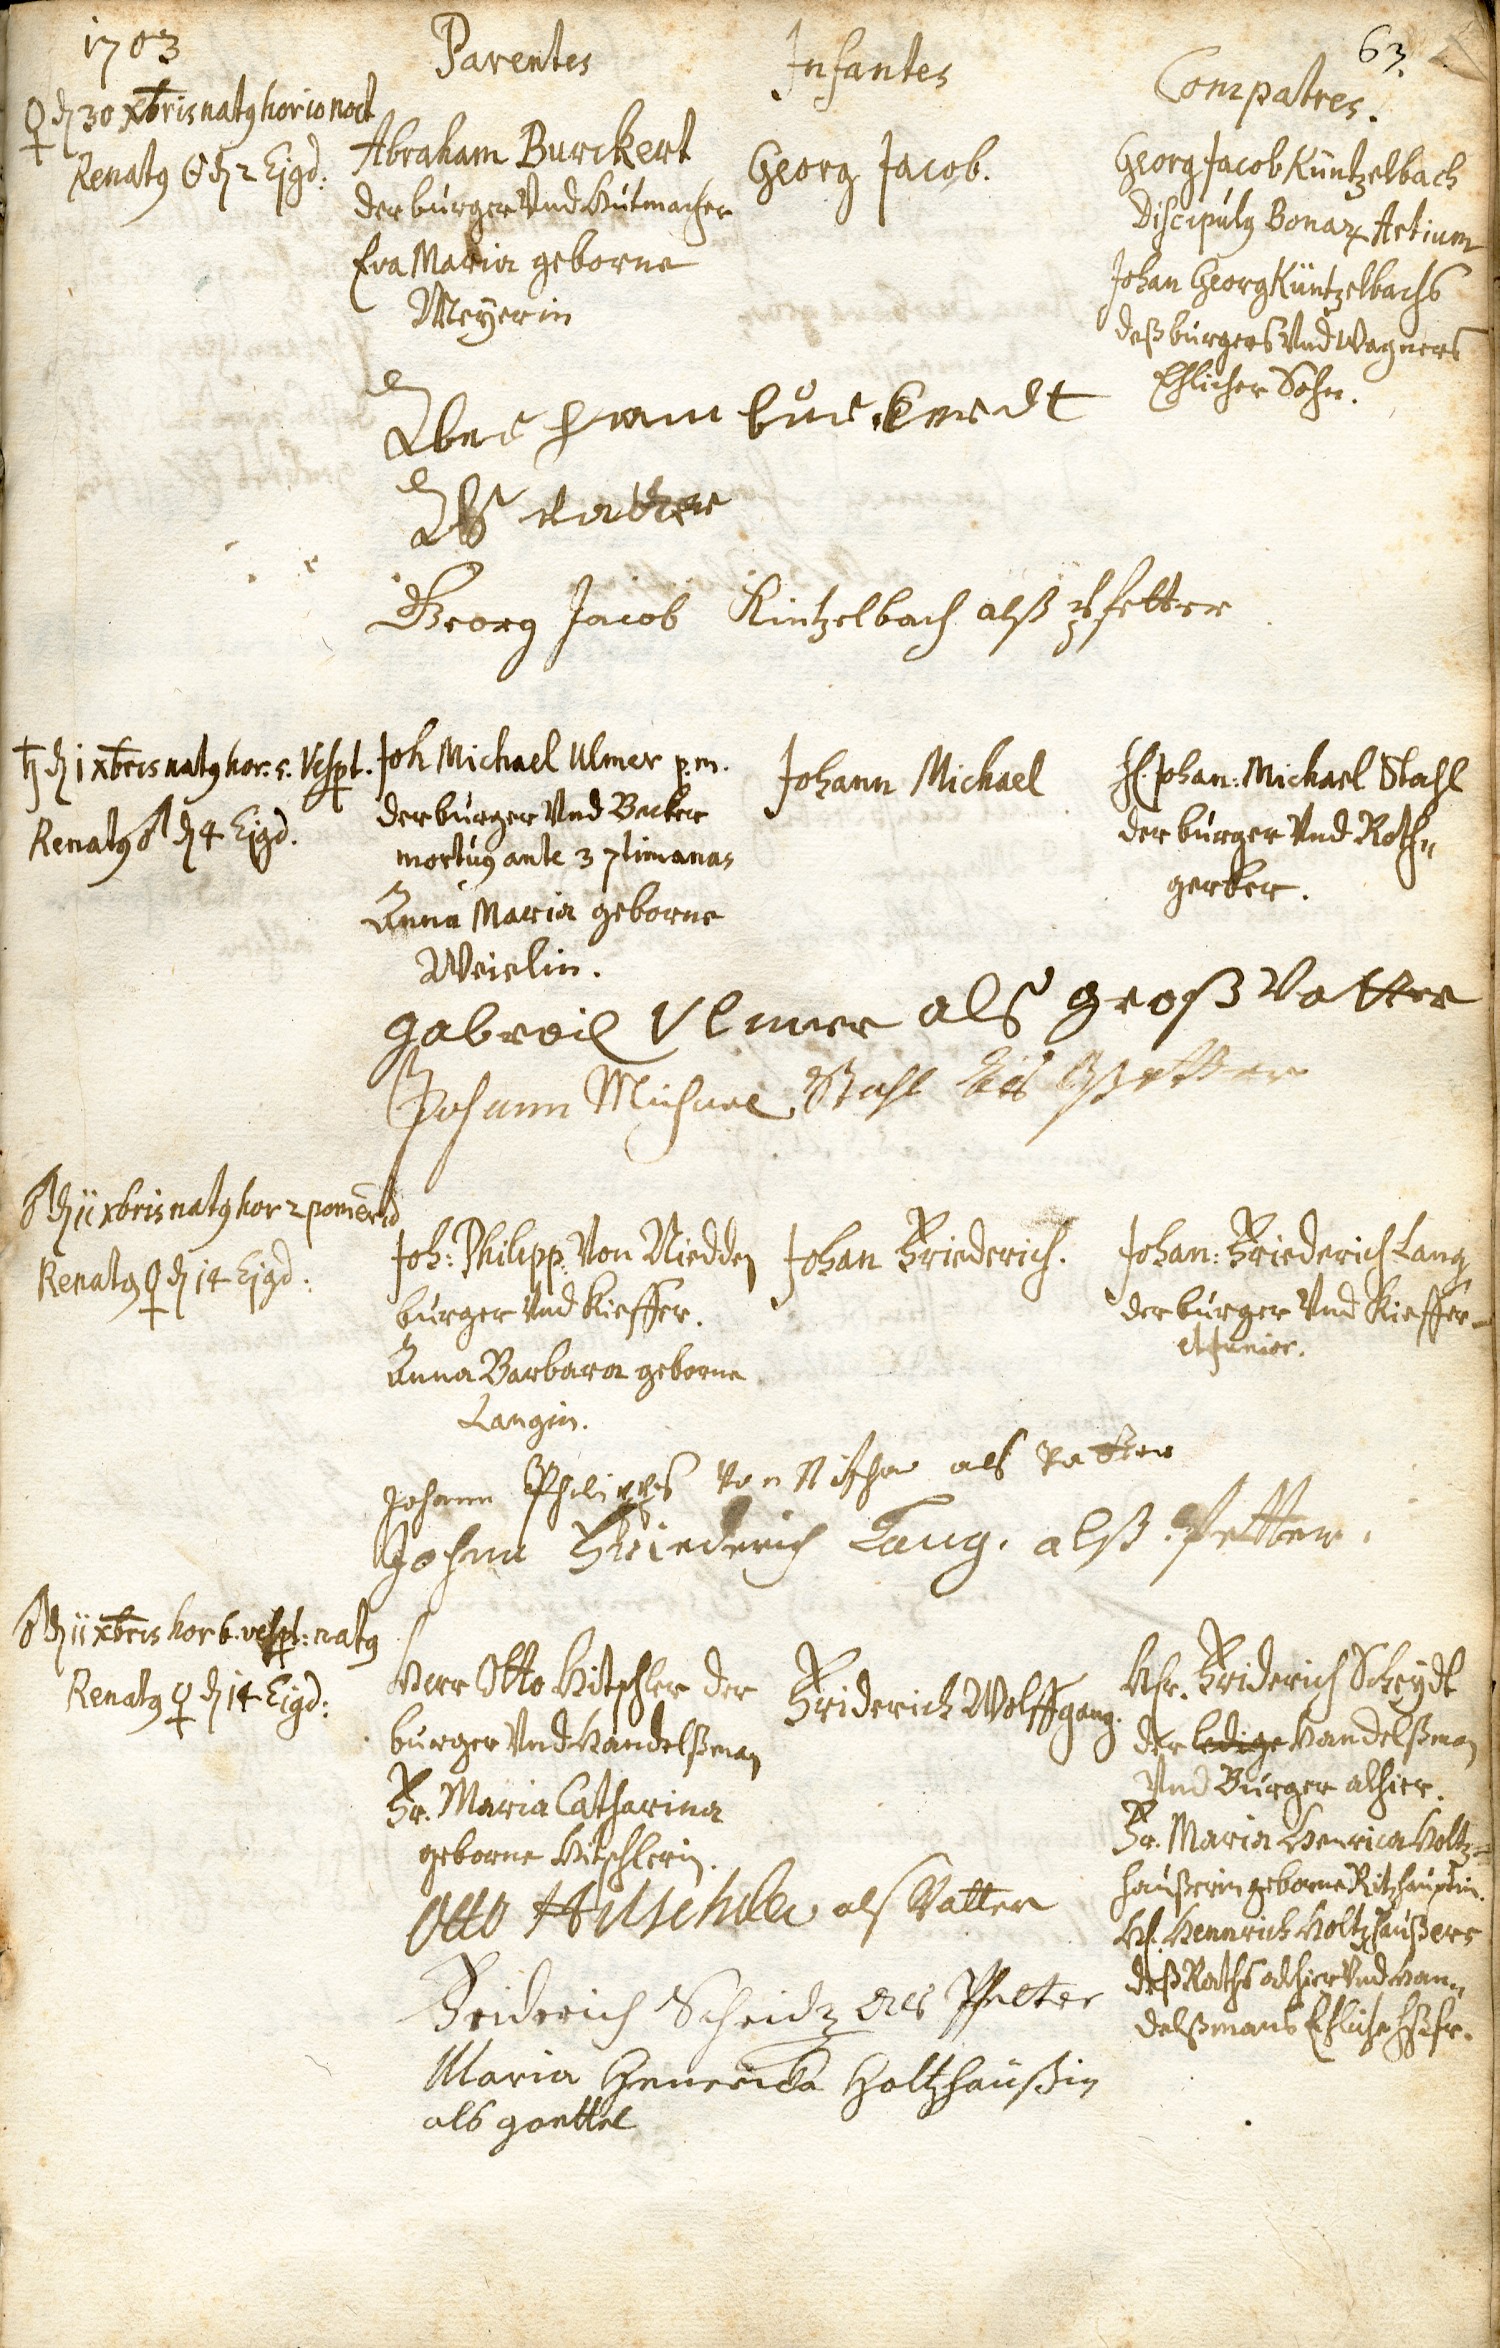 1703 Parentes Infantes Compatres. 63.
♀ d 30 xbris natꝰ hor 10 noct
Renatꝰ ☉ d 2 Ejgd:
Abraham Burckert
der burger Vnd Hutmacher
Eva Maria geborne
Meÿerin
Georg Jacob.
Georg Jacob Küntzelbach
Discipulꝰ Bonaꝝ Artium
Johan Georg Küntzelbachs
deß burgers Vnd Wagners
Ehlicher Sohn.
Abraham burckerdt
Als vatter
Georg Jacob Kintzelbach alß pfetter
♄ d 1 xbris natꝰ hor: 5. Vespt.
Renatꝰ ♂ d 4 Ejgd.
Joh Michael Ulmer p.m.
der burger Vnd Becker
mortuꝰ ante 3 7timanas
Anna Maria geborne
Weielin.
Johann Michael
H. Johan: Michael Stahl
der burger Vnd Roth„
gerber.
gabreil Vlmer als groß Vatter
Johann Michael Stahl als Pfetter
♂ d 11 xbris natꝰ hor 2 pomerid
Renatꝰ ♀ d 14 Ejgd:
Joh: Philipp Von Nidden
burger Vnd Kieffer.
Anna Barbara geborne
Langin.
Johan Friederich.
Johan: Friederich Lang
der burger Vnd Kieffer
et Junior.
Johann Philipps Von als Vatter
Johan Friederich Lang. alß Pfetter.
♂ d 11 xbris hor 6. vespt: natꝰ
Renatꝰ ♀ d 14 Eigd:
Herr Otto Hitschler der
burger Vnd Handelßman
Fr. Maria Catharina
geborne Hitschlerin.
Friderich Wolffgang.
Hr. Friderich Scheydt
der ledige Handelßman
Vnd Burger alhier.
Fr. Maria Henrica Holtz=
haußerin geborne Ritzhauptin.
H. Hennrich Holtzhaußers
deß Raths alhier Vnd Han„
delßmans Ehliche Hßfr.
Otto Hitschler als Vatter
Friderich Scheidz als Pfetter
Maria Henricka Holtzhaußin
als goettel